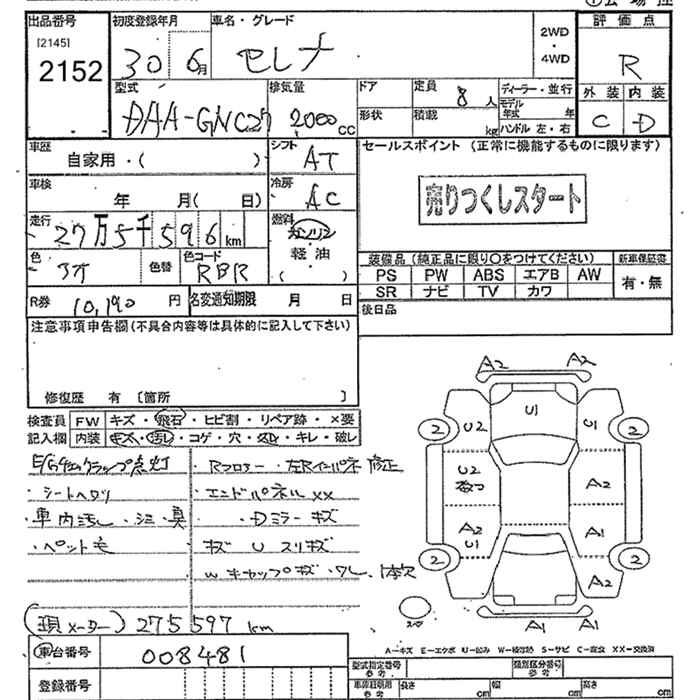 出品番号 初度登録年月 車名・グレード 2WD・4WD 評価点
[2145]
2152 30 6月 セレナ R
型式 排気量 ドア 定員 8人 ディーラー・並行 外装 内装
DAA-GNC27 2000cc 形状 積載 kg モデル年式 年 ハンドル 左・右 C D
車歴 自家用・( ) シフト AT セールスポイント (正常に機能するものに限ります)
車検 年 月( 日) 冷房 AC 売りつくしスタート
走行 27万5千596km 燃料 ガソリン 軽油 ( )
色 アオ 色替 色コード RBR 装備品 (純正品に限り○をつけてください) 新車保証書
PS PW ABS エアB AW 有・無
SR ナビ TV カワ
R券 10,190円 名変通知期限 月 日 後日品
注意事項申告欄(不具合内容等は具体的に記入して下さい)
修復歴 有 [箇所 ]
検査員 FW キズ・飛石・ヒビ割・リペア跡・×要
記入欄 内装 キズ・汚し・コゲ・穴・スレ・キレ・破レ
シートヘタリ
車内汚し・シミ・臭
・ペット毛
・Rフロアー・左Rインパネ修正
・エンドパネルxx
・Dミラーキズ
キズ U スリキズ
(現メーター) 275597km
車台番号 008481
登録番号
A2 A2
U1
U2 U1
2 2
U2 A2
A2 U1 A1
2 2
A2
A1 A1
A-キズ E-エクボ U-凹み W-補修跡 S-サビ C-腐食 XX-交換済
型式指定番号 参考 類別区分番号 参考
車両証明用 参考 長さ cm 幅 cm 高さ cm